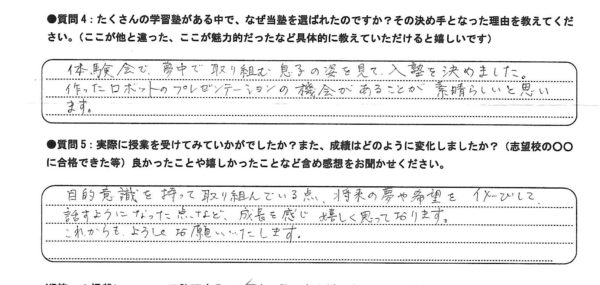 ●質問4：たくさんの学習塾がある中で、なぜ当塾を選ばれたのですか？その決め手となった理由を教えてくだ
さい。（ここが他と違った、ここが魅力的だったなど具体的に教えていただけると嬉しいです）
体験会で、夢中で取り組む息子の姿を見て、入塾を決めました。
作ったロボットのプレゼンテーションの機会があることが素晴らしいと思い
ます。
●質問5：実際に授業を受けてみていかがでしたか？また、成績はどのように変化しましたか？（志望校の〇〇
に合格できた等）良かったことや嬉しかったことなど含め感想をお聞かせください。
目的意識を持って取り組んでいる点、将来の夢や希望をイメージして
話すようになった点、など、成長を感じ嬉しく思っております。
これからも、よろしくお願いいたします。